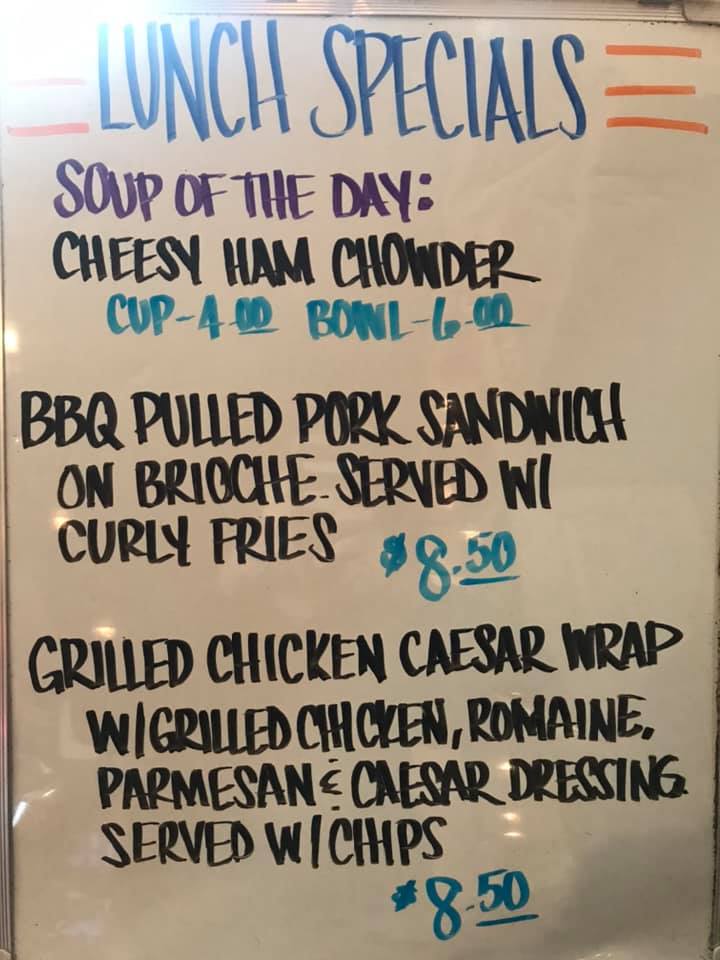 LUNCH SPECIALS
SOUP OF THE DAY:
CHEESY HAM CHOWDER
CUP-4.00 BOWL-6.00
BBQ PULLED PORK SANDWICH
ON BRIOCHE. SERVED W/
CURLY FRIES $8.50
GRILLED CHICKEN CAESAR WRAP
W/GRILLED CHICKEN, ROMAINE,
PARMESAN & CAESAR DRESSING.
SERVED W/CHIPS
$8.50